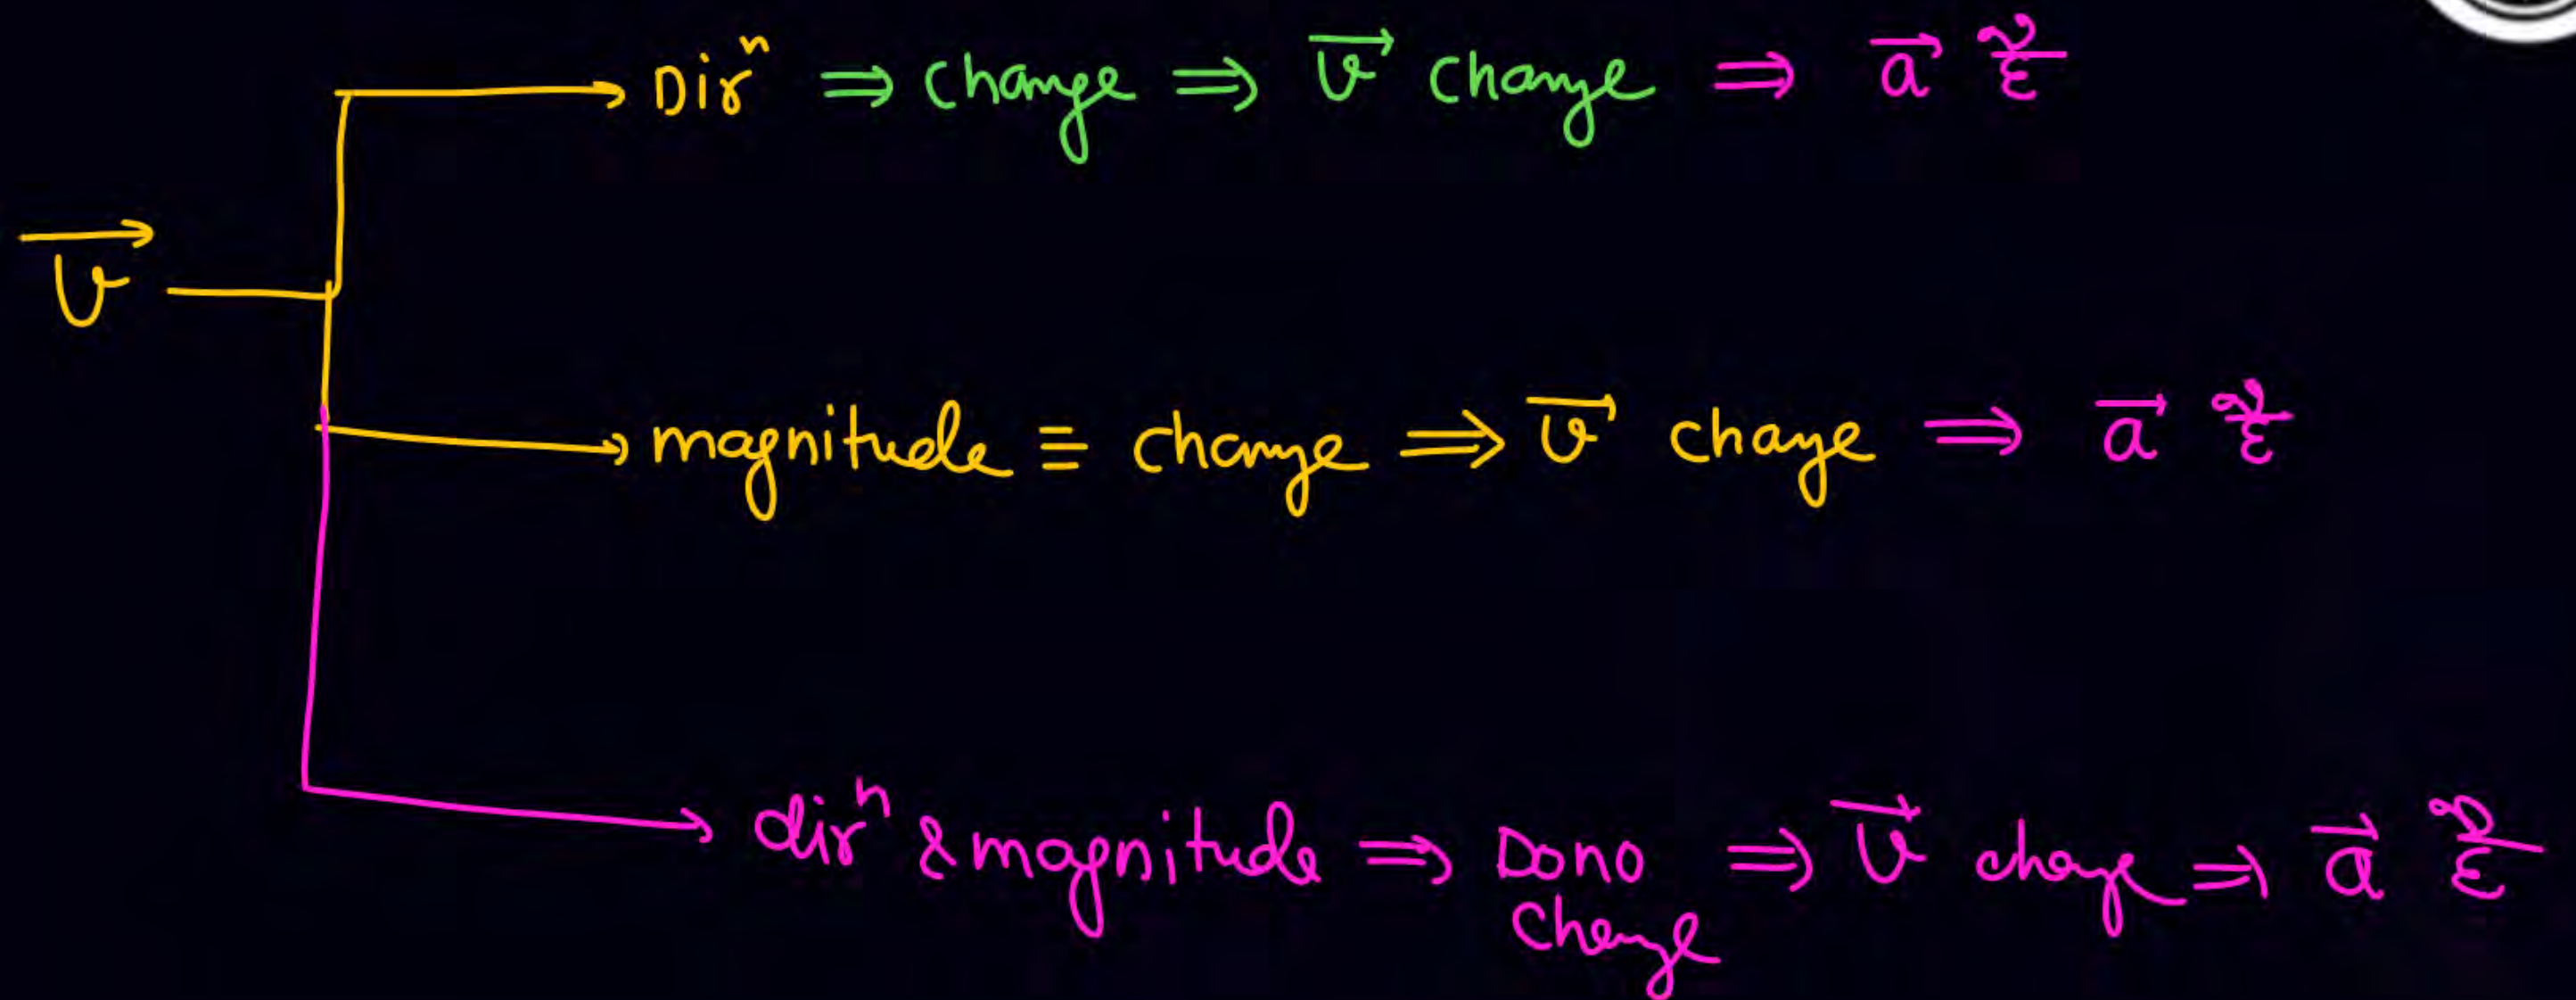 Dirⁿ ⇒ change ⇒ v⃗ change ⇒ a⃗ है
v⃗
magnitude ≡ change ⇒ v⃗ chaye ⇒ a⃗ है
dirⁿ & magnitude ⇒ Dono change ⇒ v⃗ change ⇒ a⃗ है